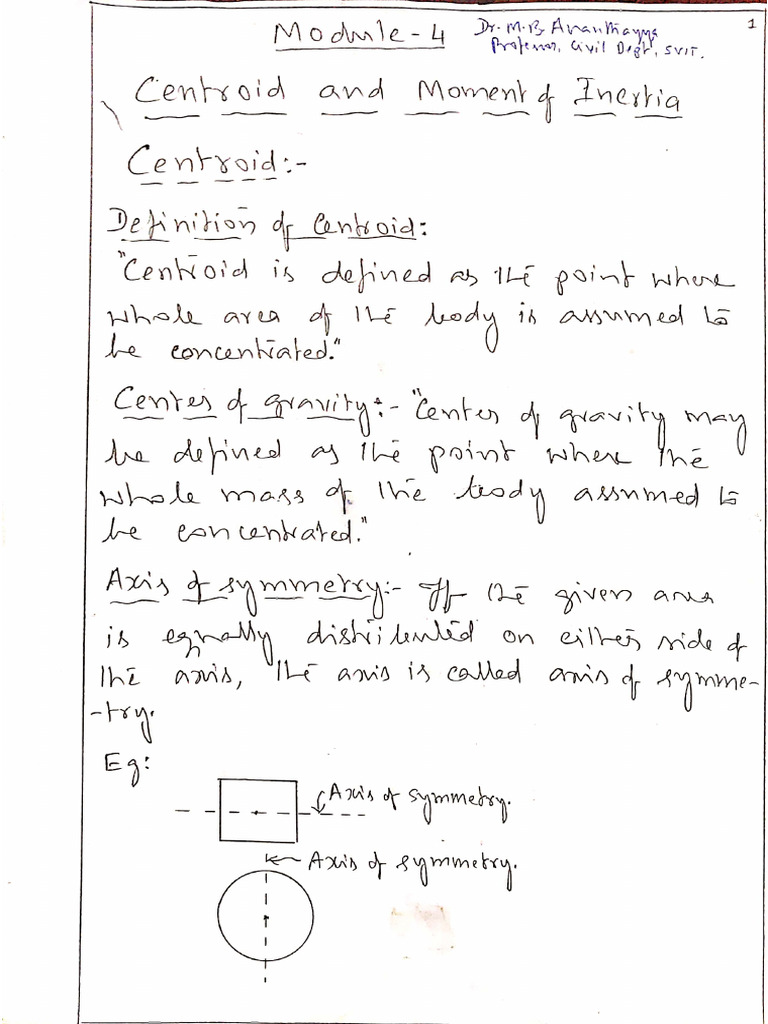 Module-4
Dr. M.B. Ananthayya
1
Professor, Civil Dept, SVIT.
Centroid and Moment of Inertia
Centroid:-
Definition of Centroid:
"Centroid is defined as the point where
whole area of the body is assumed to
be concentrated."
Center of gravity:- "Center of gravity may
be defined as the point where the
whole mass of the body assumed to
be concentrated."
Axis of symmetry:- If the given area
is equally distributed on either side of
the axis, the axis is called axis of symme-
-try.
Eg:
Axis of symmetry.
Axis of symmetry.